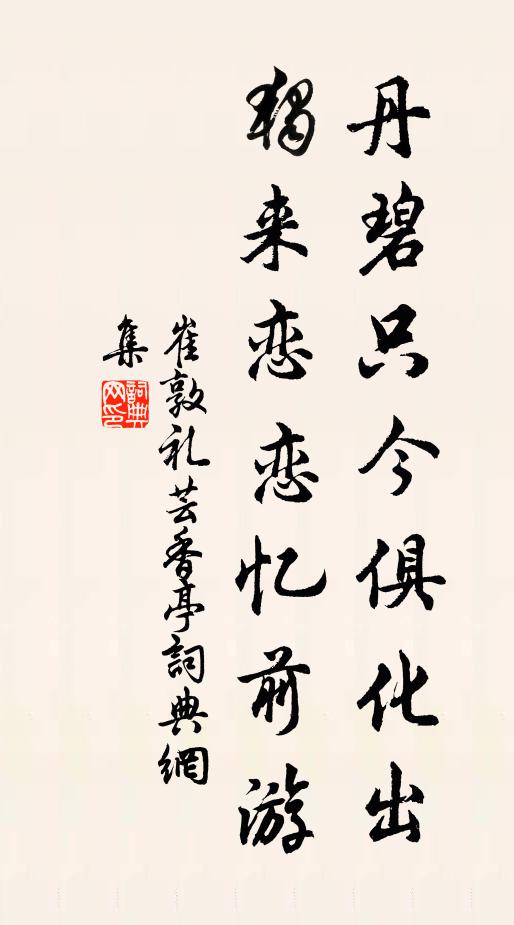 丹碧只今俱化出
独来恋恋忆前游
崔敦礼芸香亭詞典網
集
詞典
网印